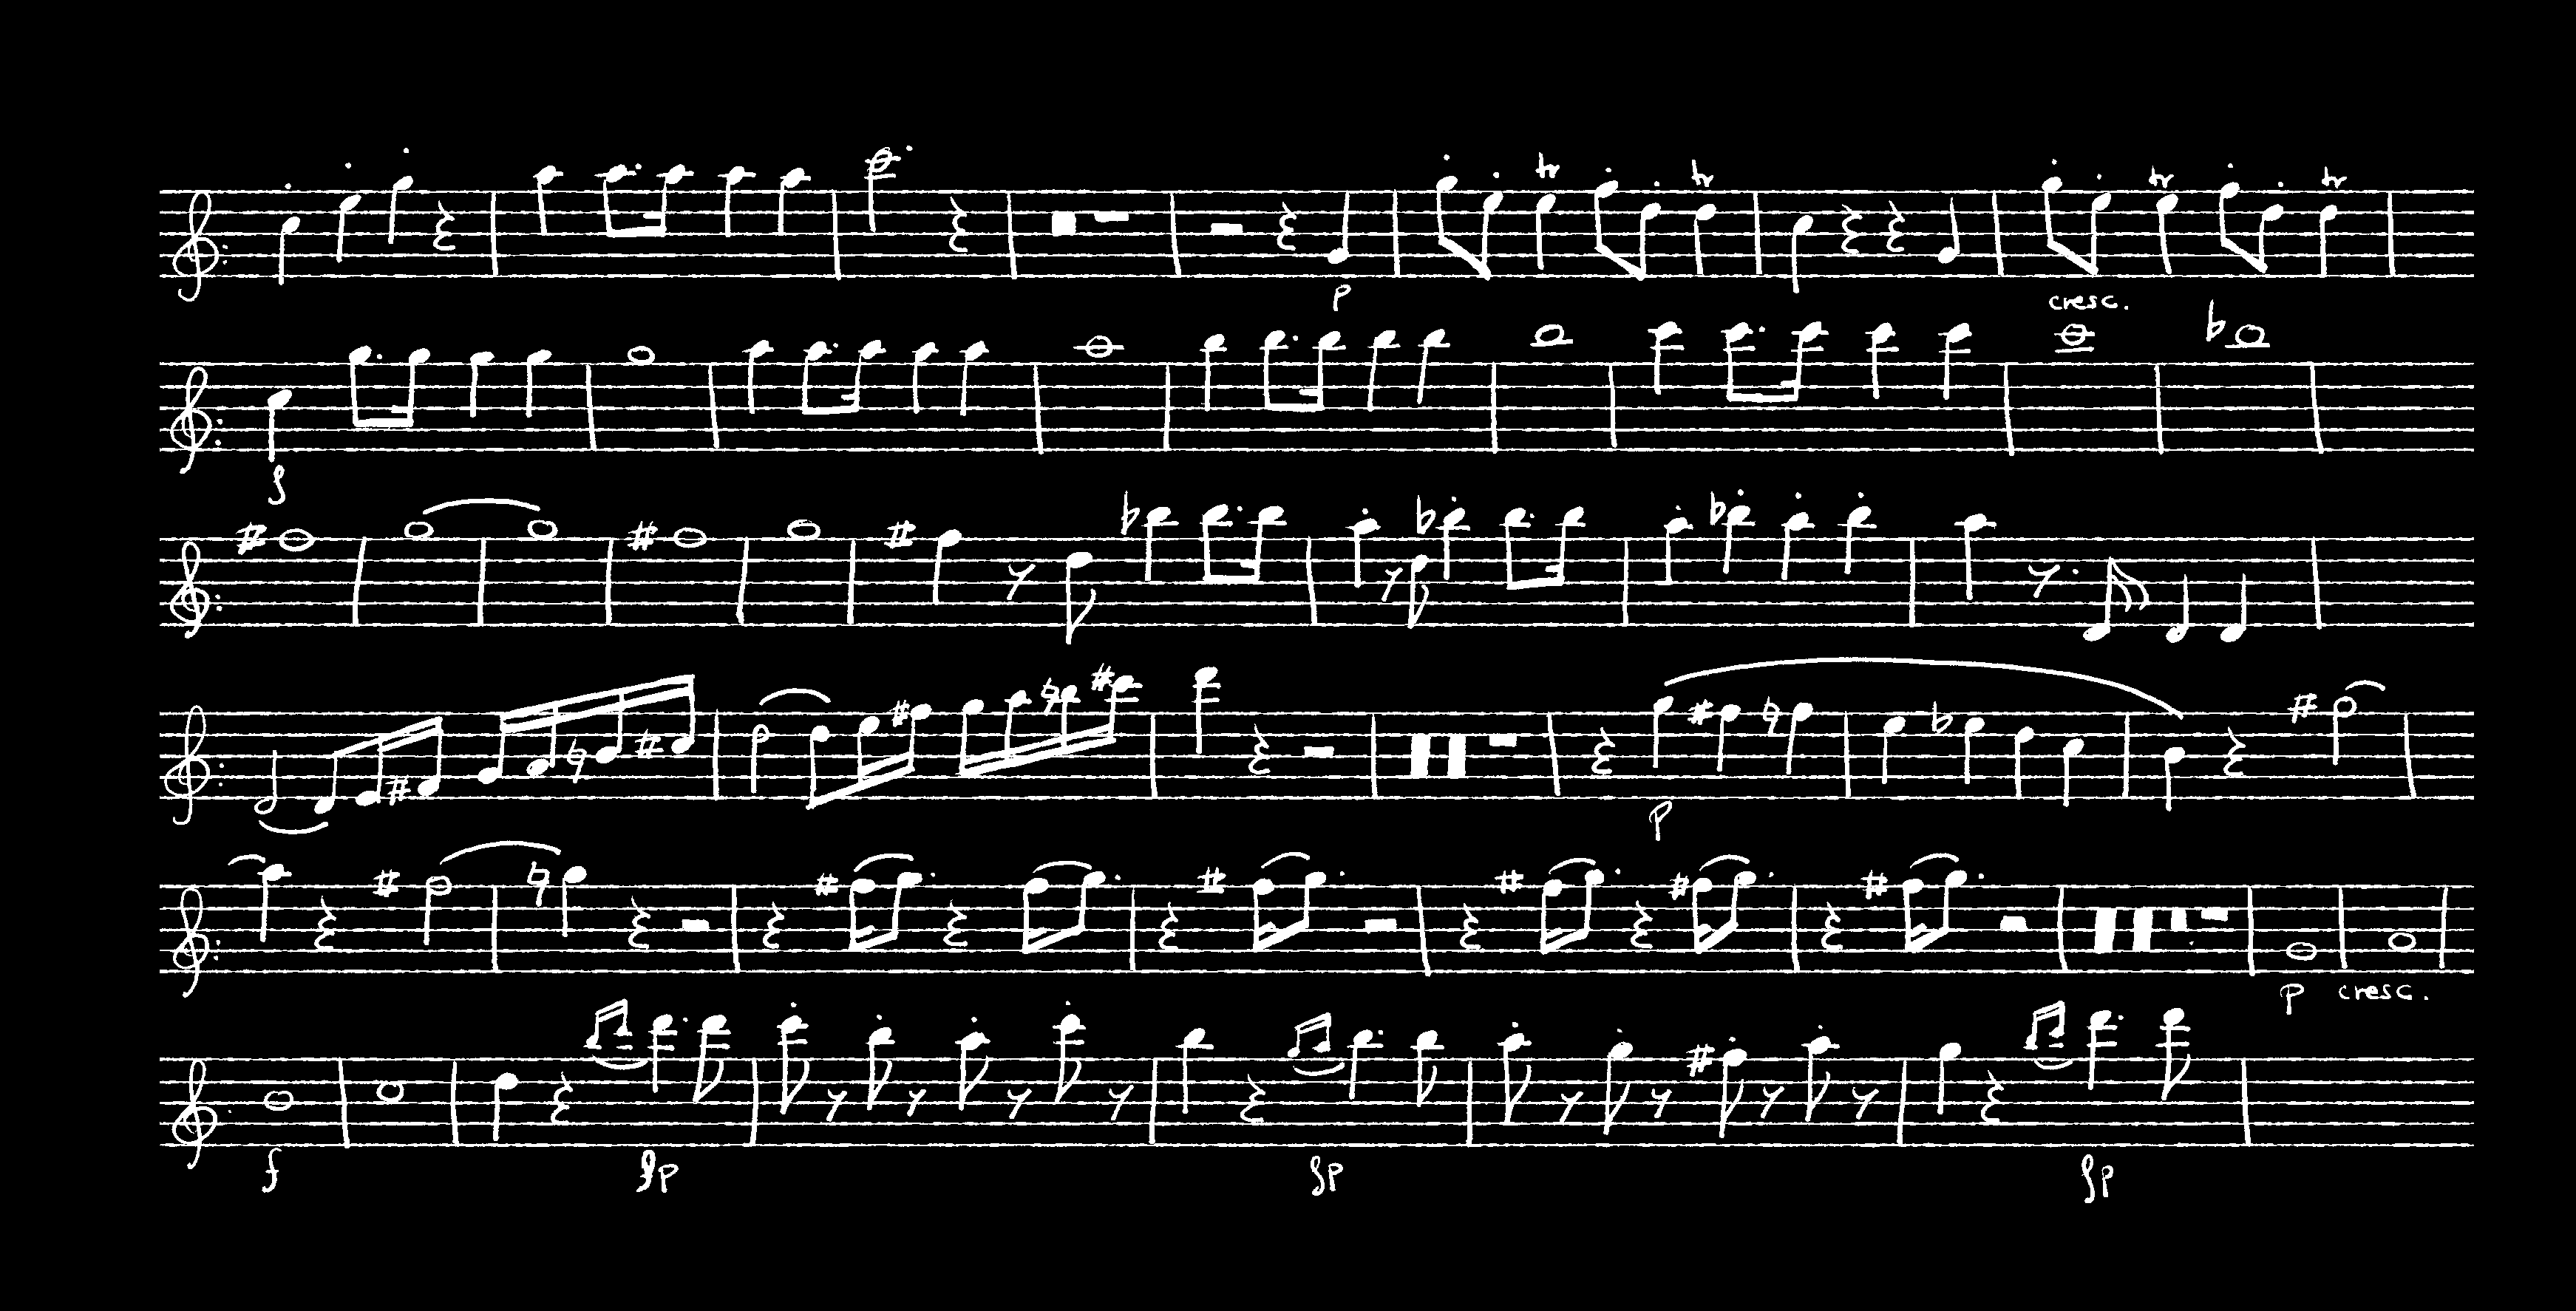 tr tr tr tr
p cresc.
f
p
p cresc.
f fp fp fp